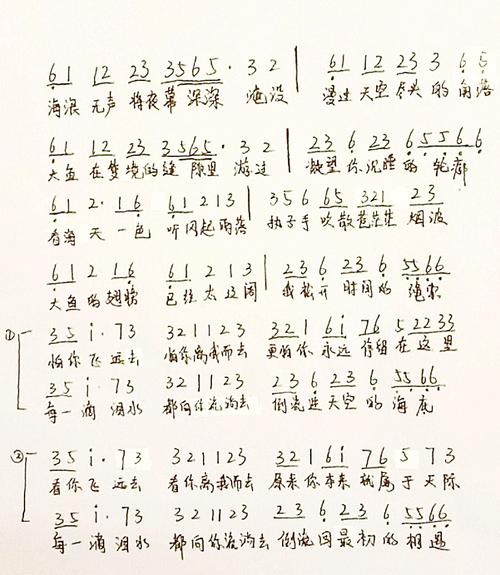 6̣1 12 23 3565· 3 2 | 6̣1 12 23 3 6̣ 5̣
海浪 无声 将夜幕 深深 淹没 漫过 天空 尽头 的 角落
6̣1 12 23 3565· 3 2 | 23 6̣ 23 6̣5̣5̣6̣6̣
大鱼 在梦境的缝 隙里 游过 凝望 你沉睡 的 轮廓
6̣1 2· 16̣ 6̣1 2 1 3 | 3 5 6 65 321 23
看海 天 一色 听风起雨落 执子手 吹散苍茫茫 烟波
6̣1 2 16̣ 6̣1 2 1 3 | 23 6̣ 23 6̣ 5̣5̣6̣6̣
大鱼 的 翅膀 已经 太辽阔 我松开 时间的 绳索
① 35 i· 73 321123 321 6i 76 5 2233
怕你飞 远去 怕你离我而去 更怕你 永远 停留 在 这里
35 i· 73 321123 236̣ 23 6̣ 5̣5̣6̣6̣
每一滴 泪水 都向你流淌去 倒流进 天空 的 海底
② 35 i· 73 321123 321 6i 76 5 7 3
看你飞 远去 看你离我而去 原来你 本来 就属 于 天际
35 i· 73 321123 236̣ 236̣ 5̣5̣6̣6̣
每一滴 泪水 都向你流淌去 倒流回最初的 相遇